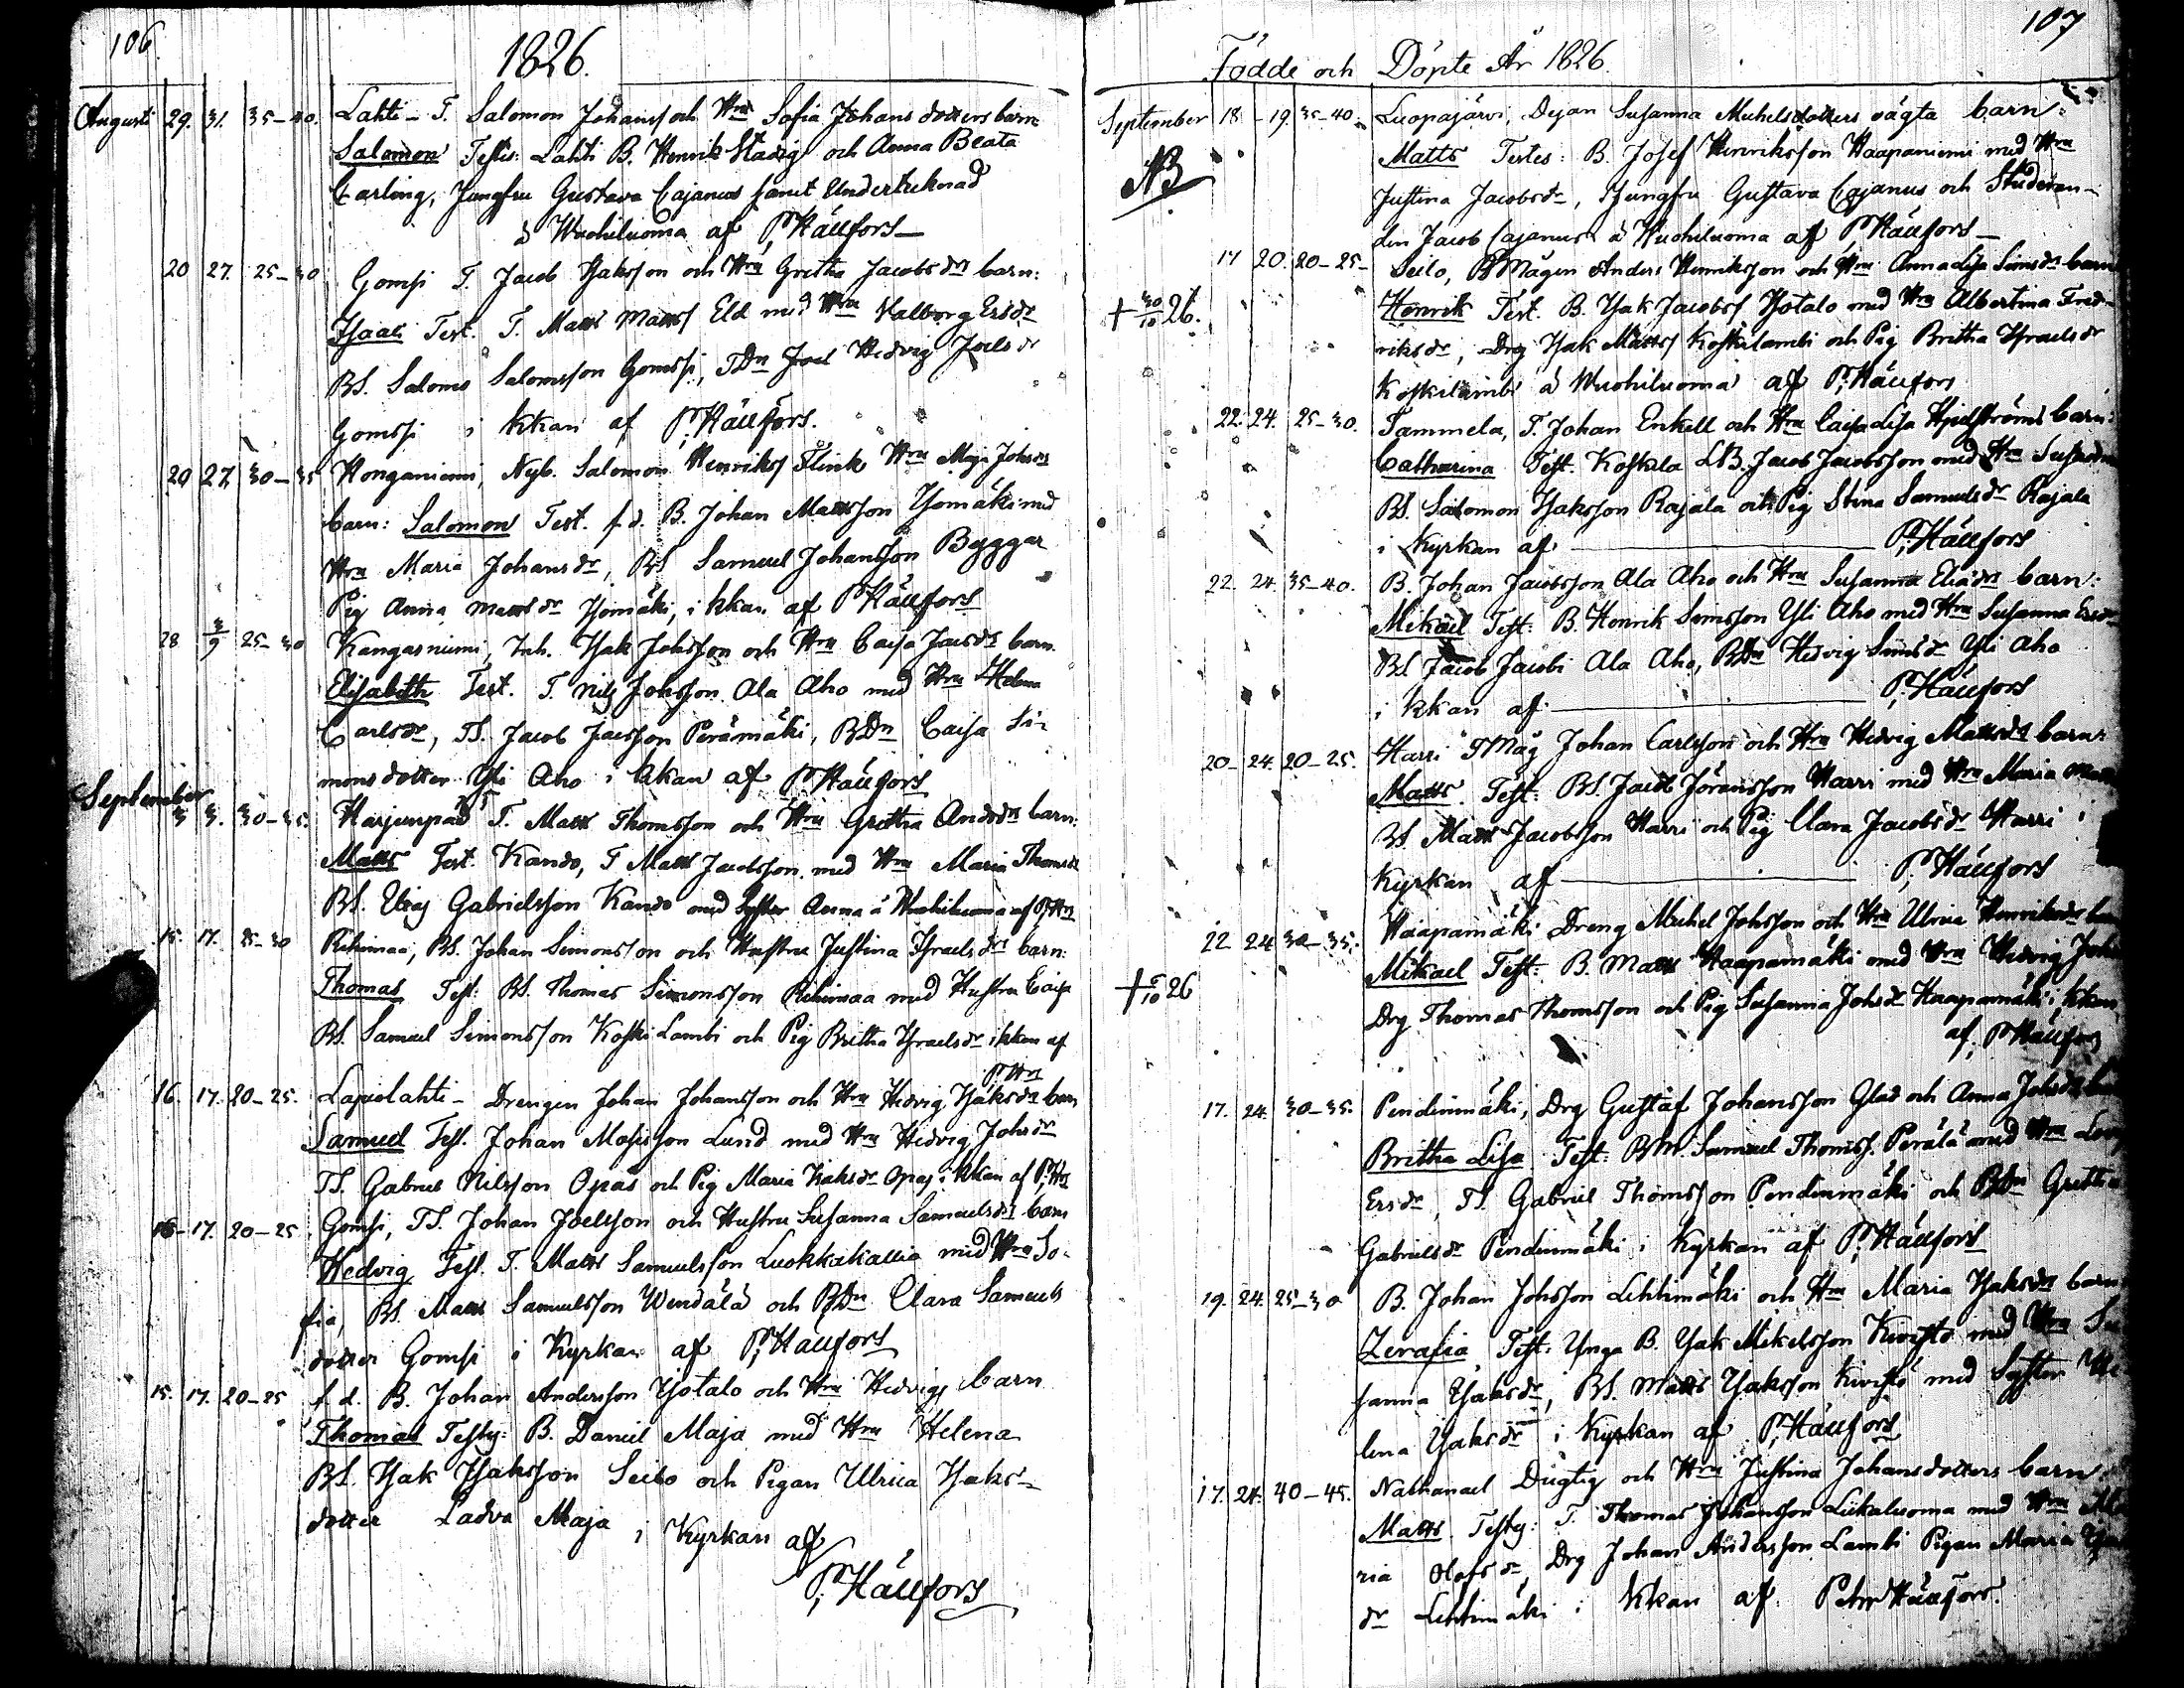 106
1826.
Augusti 29. 31. 35-40. Lahti - T. Salomon Johanss och Hru Sofia Johans dotters barn
Salomon Testes: Lahti B. Henrik Stadig och Anna Beata
Carling, Jungfru Gustava Cajanus samt Undertecknad
å Wuohiluoma af P. Hällfors
20 27. 25-30 Gomsi T. Jacob Isaksson och Hru Gretha Jacobsdrs barn:
Isaac Test. T. Matts Matts Eld med Hru Valborg Ersdr
BS. Salomo Salomsson Gomssi, TDn Hedvig Joelsdr
Gomssi i kkan af P. Hällfors.
20 27. 30-35 Honganiemi, Nyb. Salomon Henrikss Flink Hru Maja Johsdrs
barn: Salomon Test. f.d. B. Johan Mattsson Isomäki med
Hru Maria Johansdr, BS Samuel Johansson Byggar
Pig Anna Mattsdr Isomäki, i kkan af P Hällfors
28 3/9 25-30 Kangasniemi, Inh. Isak Johsson och Hru Caisa Jacsdrs barn
Elisabeth Test. T. Nils Johsson Ala Aho med Hru Helena
Carlsdr, TS. Jacob Jacsson Perämäki, BDn Caisa Si-
monsdotter Yli Aho i kkan af P Hällfors
September 3 3. 30-35. Harjunpää T. Matts Thomsson och Hru Gretha Andsdrs barn:
Matts Test. Kando, T Matts Jacobsson med Hru Maria Thomsdr
BS. Elias Gabrielsson Kando med Syster Anna å Wuohiluoma af P. Hrs
15. 17. 25-30 Rihimaa, BS. Johan Simonsson och Hustru Justina Israelsdrs barn:
Thomas Test: BS. Thomas Simonsson Rihimaa med Hustru Caisa
BS. Samuel Simonsson Koski Lambi och Pig Britha Israelsdr i kkan af
P. Hrs
16. 17. 20-25. Lapiolahti - Drengen Johan Johansson och Hru Hedvig Isaksdrs barn
Samuel Test. Johan Mosisson Lund med Hru Hedvig Johsdr
TS. Gabriel Nilsson Opas och Pig Maria Isaksdr Opas i kkan af P. Hrs
16- 17. 20-25 Gomsi, TS. Johan Joelsson och Hustru Susanna Samuelsdrs barn
Hedvig Test. T. Matts Samuelsson Luokkakallia med Hru So-
fia, BS. Matts Samuelsson Wendälä och BDn Clara Samuels
dotter Gomsi i Kyrkan af P. Hällfors
15. 17. 20-25 f.d. B. Johan Andersson Isotalo och Hru Hedvigs barn
Thomas Testes: B. Daniel Maja med Hru Helena
BS. Isak Isaksson Seilo och Pigan Ulrica Isaks-
dotter Ladva Maja i Kyrkan af
P. Hällfors
107
Födde och Döpte År 1826.
September 18 - 19. 35-40. Luopajärvi, Dejan Susanna Michelsdotters oägta barn:
NB Matts Testes: B. Josef Henriksson Haapaniemi med Hru
Justina Jacobsdr, Jungfru Gustava Cajanus och Studeran-
den Jacob Cajanus å Wuohiluoma af P Hällfors
17 20. 20-25- Seilo, BMågen Anders Henriksson och Hru Annalisa Simsdrs barn
+ 30/10 26. Henrik Test. B. Isak Jacobss Isotalo med Hru Albertina Fred-
riksdr, Drg Isak Mattss Koskilambi och Pig Britha Israelsdr
Koskilambi å Wuohiluoma af P. Hällfors
22. 24. 25-30. Tammela, T. Johan Enkell och Hru Caisa Lisa Hjelströms barn:
Catharina Test. Koskela LB. Jacob Jacobsson med Hru
BS. Salomon Isaksson Rajala och Pig Stina Samuelsdr Rajala
i Kyrkan af P. Hällfors
22. 24. 35-40. B. Johan Jacobsson Ala Aho och Hru Susanna Eliædrs barn:
Mikael Test: B. Henrik Simsson Yli Aho med Hru Susanna Ersdr
BS Jacob Jacobi Ala Aho, BDn Hedvig Simsdr Yli Aho
i kkan af P. Hällfors
20- 24. 20-25. Harri TMåg Johan Carlsson och Hru Hedvig Mattsdrs barn:
Matts Test: BS. Jacob Jöransson Harri med Hru Maria
BS. Matts Jacobsson Harri och Pig Clara Jacobsdr Harri i
Kyrkan af P. Hällfors
22 24 30-35. Haapamäki Dreng Michel Johsson och Hru Ulrica Henriksdr
+ 5/10 26 Mikael Test: B. Matts Haapamäki med Hru Hedvig Joh
Drg Thomas Thomsson och Pig Susanna Johsdr Haapamäki, i kkan
af P Hällfors
17. 24. 30-35. Pendinmäki, Drg Gustaf Johansson Glad och Anna Johsdrs
Britha Lisa Test: BM. Samuel Thomss. Perälä med Hru
Ersdr, TS. Gabriel Thomsson Pendinmäki och BDn Gretha
Gabrielsdr Pendinmäki i Kyrkan af P. Hällfors
19. 24. 25-30 B. Johan Johsson Lehtimäki och Hru Maria Isaksdrs barn
Zerafia Test: Unga B. Isak Mikelsson Kivistö med Hru Su
sanna Isaksdr, BS. Matts Isaksson Kivistö med Syster He
lena Isaksdr i Kyrkan af P. Hällfors
17. 24. 40-45. Nathanael Dugtig och Hru Justina Johansdotters barn
Matts Testes: T. Thomas Johansson Liikaluoma med Hru Ma
ria Olofsdr, Drg Johan Andersson Lambi Pigan Maria
dr Lehtimäki i kkan af Petter Hällfors.